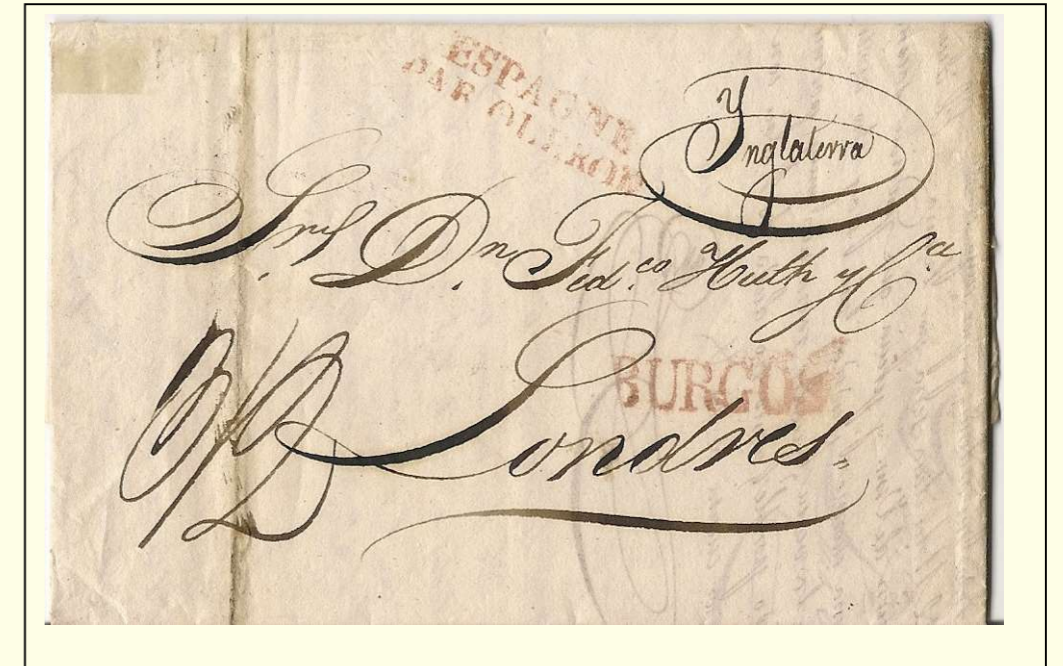 ESPAGNE
PAR OLERON
Ynglaterra
Sres Dn Fedco Huth y Ca
BURGOS
Londres